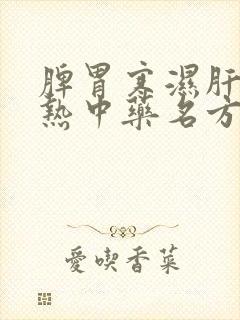 脾胃寒濕肝
熱中藥名方
愛喫香菜